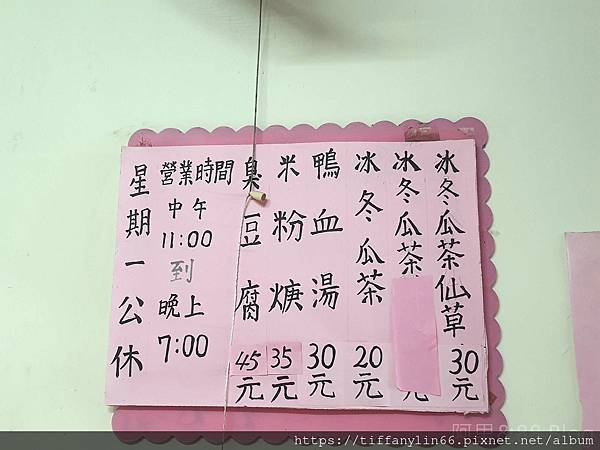 冰冬瓜茶仙草 30元
冰冬瓜茶 元
冰冬瓜茶 20元
鴨血湯 30元
米粉焿 35元
臭豆腐 45元
營業時間
中午
11:00
到
晚上
7:00
星期一公休
https://tiffanylin66.pixnet.net/album